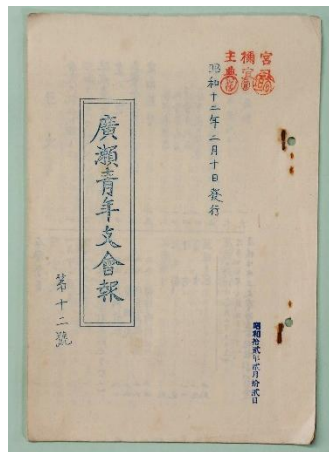 宮司
禰宜
主典
昭和十二年二月十日發行
廣瀬青年支會報
第十二號
昭和拾貳年貳月拾貳日